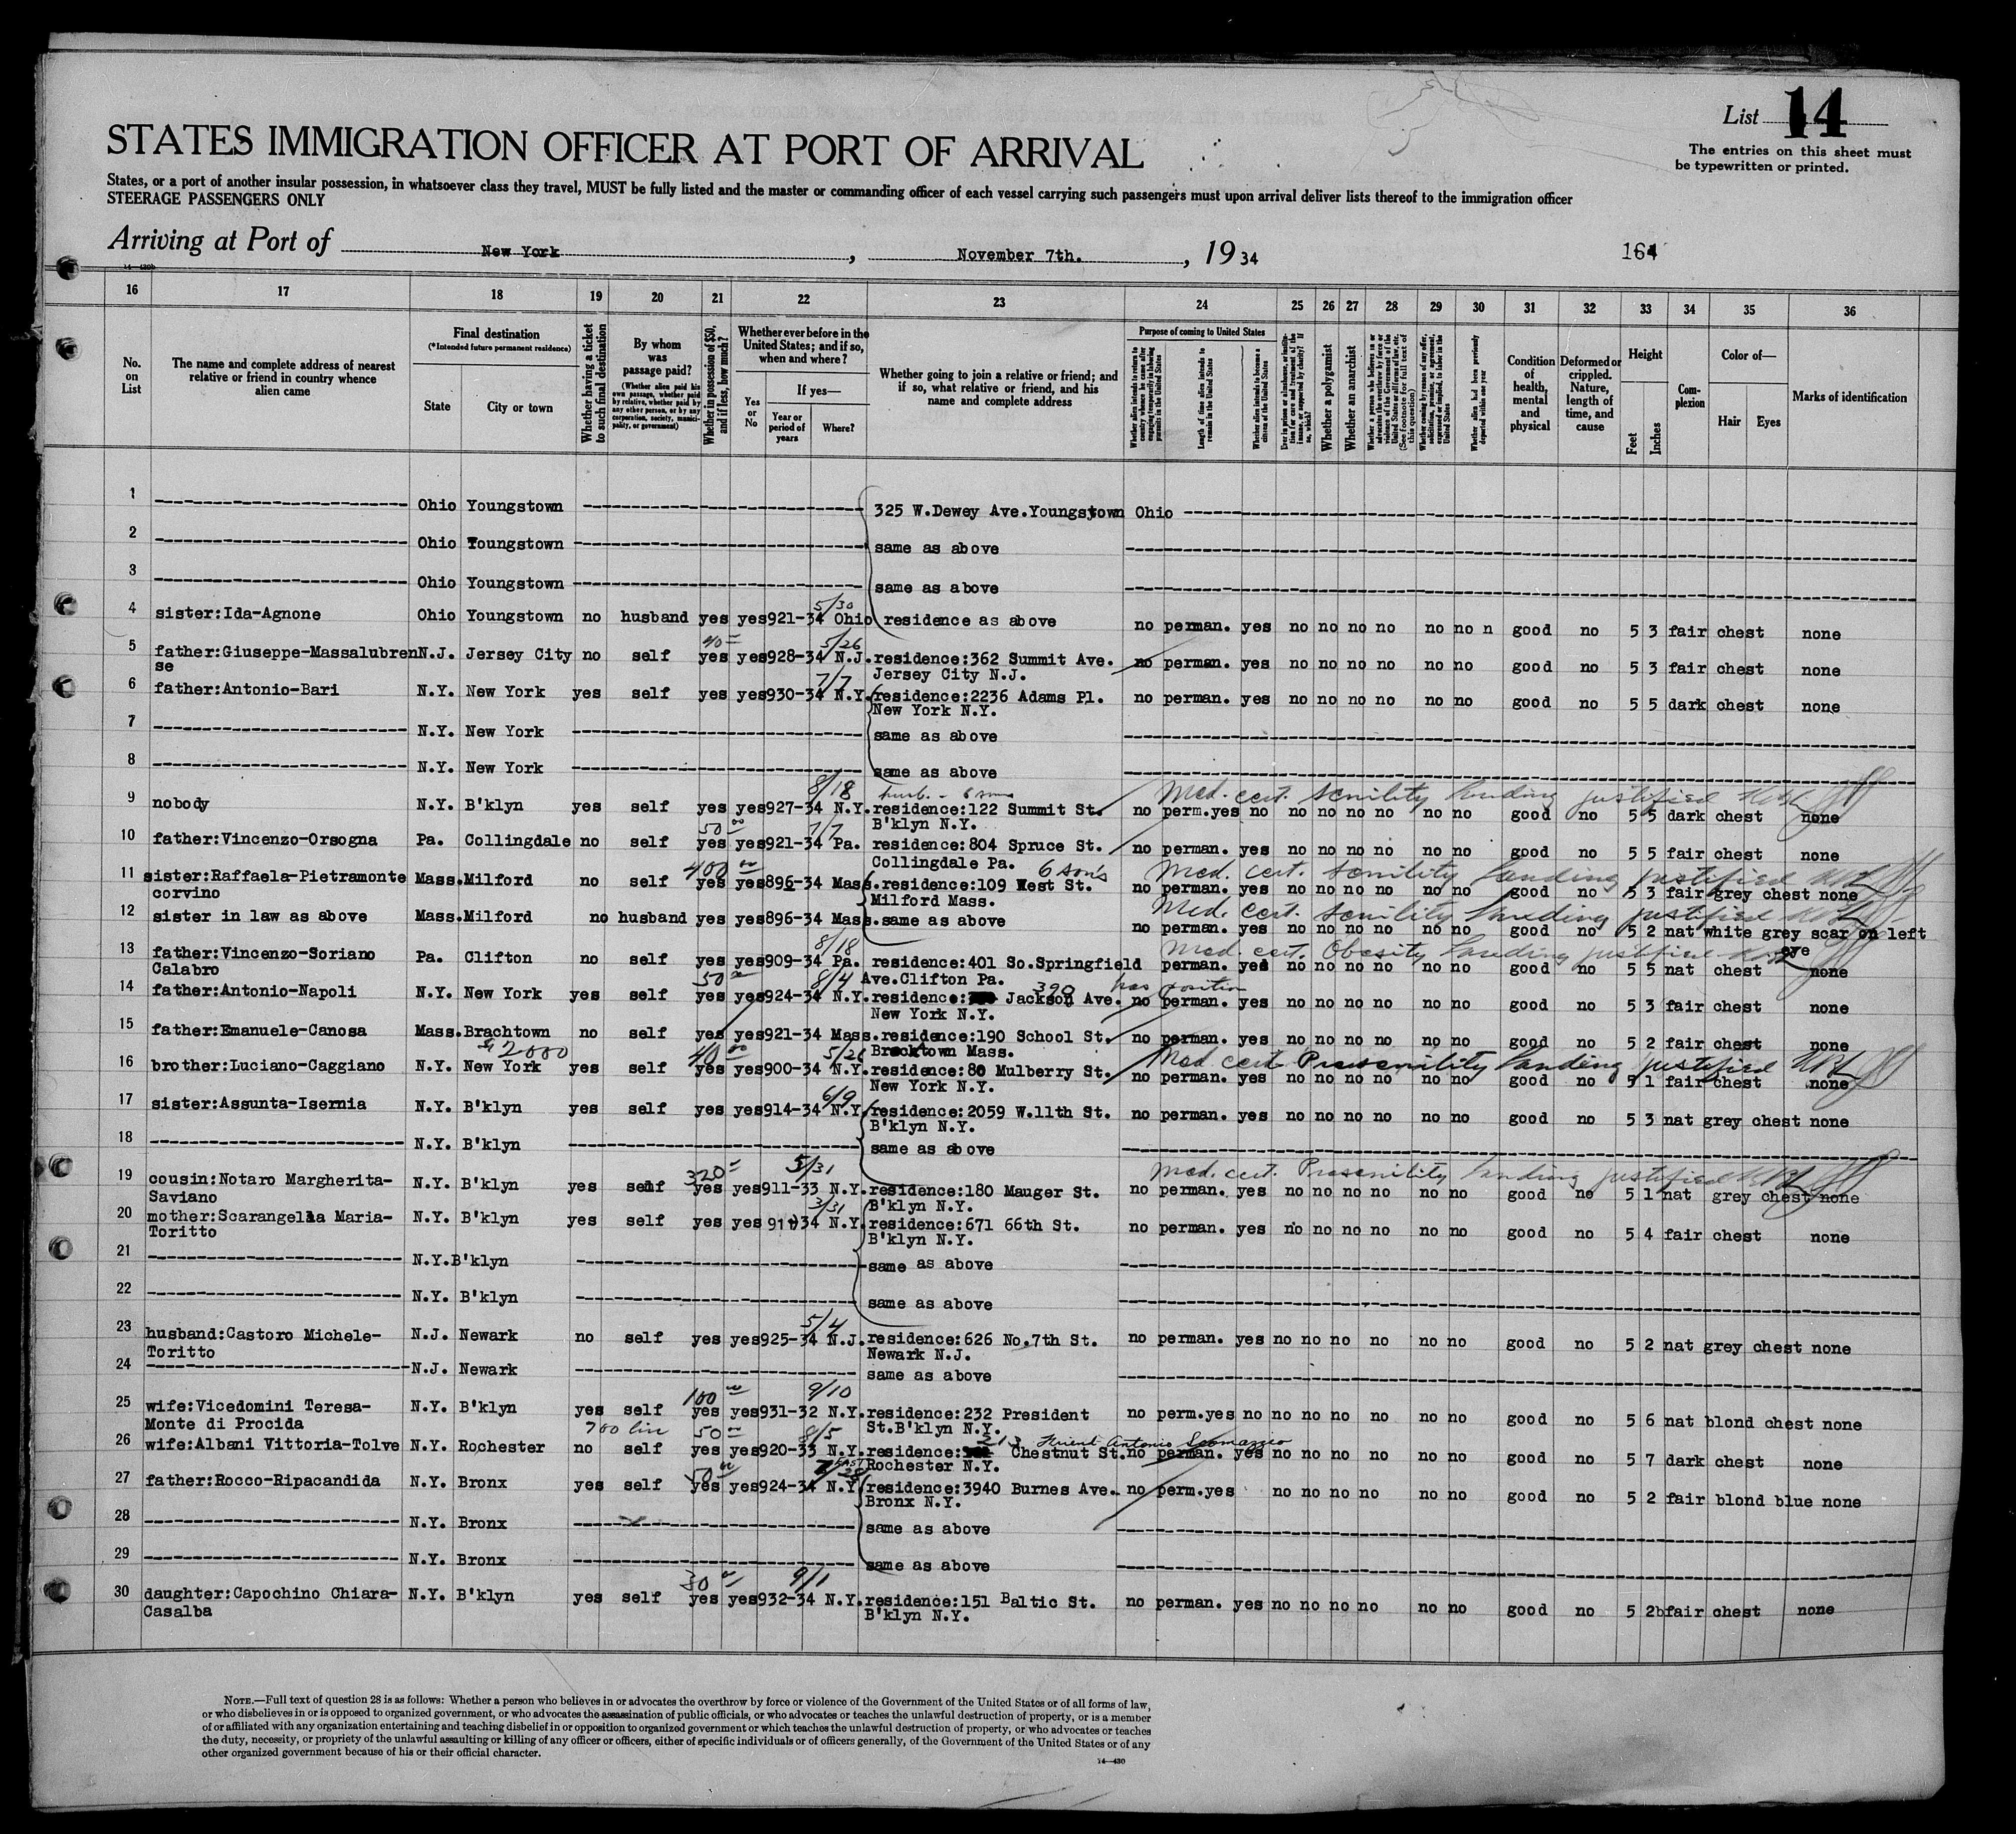 List 14
The entries on this sheet must
be typewritten or printed.
STATES IMMIGRATION OFFICER AT PORT OF ARRIVAL
States, or a port of another insular possession, in whatsoever class they travel, MUST be fully listed and the master or commanding officer of each vessel carrying such passengers must upon arrival deliver lists thereof to the immigration officer
STEERAGE PASSENGERS ONLY
Arriving at Port of New York, November 7th., 1934
164
14—430b
16 17 18 19 20 21 22 23 24 25 26 27 28 29 30 31 32 33 34 35 36
No. on List
The name and complete address of nearest relative or friend in country whence alien came
Final destination
(*Intended future permanent residence)
State
City or town
Whether having a ticket to such final destination
By whom was passage paid?
(Whether alien paid his own passage, whether paid by relative, whether paid by any other person, or by any corporation, society, municipality, or government)
Whether in possession of $50, and if less, how much?
Whether ever before in the United States; and if so, when and where?
Yes or No
If yes—
Year or period of years
Where?
Whether going to join a relative or friend; and if so, what relative or friend, and his name and complete address
Purpose of coming to United States
Whether alien intends to return to country whence he came after engaging temporarily in laboring pursuits in the United States
Length of time alien intends to remain in the United States
Whether alien intends to become a citizen of the United States
Ever in prison or almshouse, or institution for care and treatment of the insane, or supported by charity? If so, which?
Whether a polygamist
Whether an anarchist
Whether a person who believes in or advocates the overthrow by force or violence of the Government of the United States or all forms of law, etc. (See footnote for full text of this question)
Whether coming by reason of any offer, solicitation, promise, or agreement, expressed or implied, to labor in the United States
Whether alien had been previously deported within one year
Condition of health, mental and physical
Deformed or crippled. Nature, length of time, and cause
Height
Feet
Inches
Complexion
Color of—
Hair
Eyes
Marks of identification
1 Ohio Youngstown 325 W.Dewey Ave.Youngstown Ohio
2 Ohio Youngstown same as above
3 Ohio Youngstown same as above
5/30
4 sister:Ida-Agnone Ohio Youngstown no husband yes yes921-34 Ohio residence as above no perman. yes no no no no no no n good no 5 3 fair chest none
40= 5/26
5 father:Giuseppe-Massalubren N.J. Jersey City no self yes yes928-34 N.J. residence:362 Summit Ave. no perman. yes no no no no no no good no 5 3 fair chest none
se Jersey City N.J.
7/7
6 father:Antonio-Bari N.Y. New York yes self yes yes930-34 N.Y. residence:2236 Adams Pl. no perman. yes no no no no no no good no 5 5 dark chest none
New York N.Y.
7 N.Y. New York same as above
8 N.Y. New York same as above
8/18 Med. cert. Senility landing justified
9 nobody N.Y. B'klyn yes self yes yes927-34 N.Y. residence:122 Summit St. no perm.yes no no no no no no no good no 5 5 dark chest none
B'klyn N.Y.
50 00 7/7
10 father:Vincenzo-Orsogna Pa. Collingdale no self yes yes921-34 Pa. residence:804 Spruce St. no perman. yes no no no no no no good no 5 5 fair chest none
Collingdale Pa.
400 00 6 sons Med. cert. Senility landing justified
11 sister:Raffaela-Pietramonte Mass. Milford no self yes yes896-34 Mass. residence:109 West St. no perman. yes no no no no no no good no 5 3 fair grey chest none
corvino Milford Mass.
Med. cert. Senility landing justified
12 sister in law as above Mass. Milford no husband yes yes896-34 Mass. same as above no perman. yes no no no no no no good no 5 2 nat white grey scar on left
eye
8/18 Med. cert. Obesity landing justified
13 father:Vincenzo-Soriano Pa. Clifton no self yes yes909-34 Pa. residence:401 So.Springfield perman. yes no no no no no no good no 5 5 nat chest none
Calabro Ave.Clifton Pa.
50 00 8/4 390 has position
14 father:Antonio-Napoli N.Y. New York yes self yes yes924-34 N.Y. residence: Jackson Ave. no perman. yes no no no no no no good no 5 3 fair chest none
New York N.Y.
15 father:Emanuele-Canosa Mass. Brachtown no self yes yes921-34 Mass. residence:190 School St. no perman. yes no no no no no no good no 5 2 fair chest none
Brocktown Mass.
$2000 40 00 5/26 Med cert Presenility landing justified
16 brother:Luciano-Caggiano N.Y. New York yes self yes yes900-34 N.Y. residence:80 Mulberry St. no perman. yes no no no no no no good no 5 1 fair chest none
New York N.Y.
6/9
17 sister:Assunta-Isernia N.Y. B'klyn yes self yes yes914-34 N.Y. residence:2059 W.11th St. no perman. yes no no no no no no good no 5 3 nat grey chest none
B'klyn N.Y.
18 N.Y. B'klyn same as above
320= 5/31 Med. cert. Presenility landing justified
19 cousin:Notaro Margherita- N.Y. B'klyn yes self yes yes911-33 N.Y. residence:180 Mauger St. no perman. yes no no no no no no good no 5 1 nat grey chest none
Saviano B'klyn N.Y.
3/31
20 mother:Scarangella Maria- N.Y. B'klyn yes self yes yes 911-34 N.Y. residence:671 66th St. no perman. yes no no no no no no good no 5 4 fair chest none
Toritto B'klyn N.Y.
21 N.Y.B'klyn same as above
22 N.Y. B'klyn same as above
5/4
23 husband:Castoro Michele- N.J. Newark no self yes yes925-34 N.J. residence:626 No.7th St. no perman. yes no no no no no no good no 5 2 nat grey chest none
Toritto Newark N.J.
24 N.J. Newark same as above
100 00 9/10
25 wife:Vicedomini Teresa- N.Y. B'klyn yes self yes yes931-32 N.Y. residence:232 President no perm.yes no no no no no no no good no 5 6 nat blond chest none
Monte di Procida St.B'klyn N.Y.
700 lire 50 00 8/5 213 friend Antonio
26 wife:Albani Vittoria-Tolve N.Y. Rochester no self yes yes920-33 N.Y. residence: Chestnut St. no perman. yes no no no no no no good no 5 7 dark chest none
Rochester N.Y.
50 00
27 father:Rocco-Ripacandida N.Y. Bronx yes self yes yes924-34 N.Y. residence:3940 Burnes Ave. no perm.yes no no no no no no good no 5 2 fair blond blue none
Bronx N.Y.
28 N.Y. Bronx same as above
29 N.Y. Bronx same as above
30 9/1
30 daughter:Capochino Chiara- N.Y. B'klyn yes self yes yes932-34 N.Y. residence:151 Baltic St. no perman. yes no no no no no no good no 5 2 fair chest none
Casalba B'klyn N.Y.
NOTE.—Full text of question 28 is as follows: Whether a person who believes in or advocates the overthrow by force or violence of the Government of the United States or of all forms of law,
or who disbelieves in or is opposed to organized government, or who advocates the assassination of public officials, or who advocates or teaches the unlawful destruction of property, or is a member
of or affiliated with any organization entertaining and teaching disbelief in or opposition to organized government or which teaches the unlawful destruction of property, or who advocates or teaches
the duty, necessity, or propriety of the unlawful assaulting or killing of any officer or officers, either of specific individuals or of officers generally, of the Government of the United States or of any
other organized government because of his or their official character.
14—430